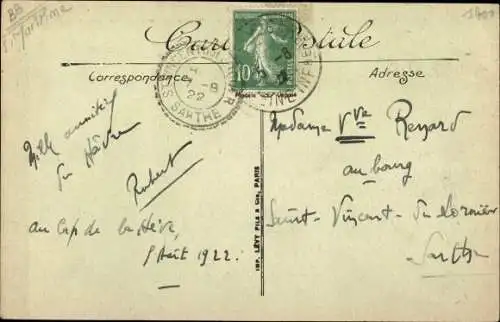 BB
Carte Postale
Correspondance
Adresse
10
ST VINCENT
SARTHE
-8
22
INFRE
Mille amitiés
du Hâvre
Robert
au Cap de la Hève,
Août 1922.
IMP. LÉVY FILS & Cie, PARIS
Madame Vve Renard
au bourg
Saint-Vincent-du Lorouër
Sarthe